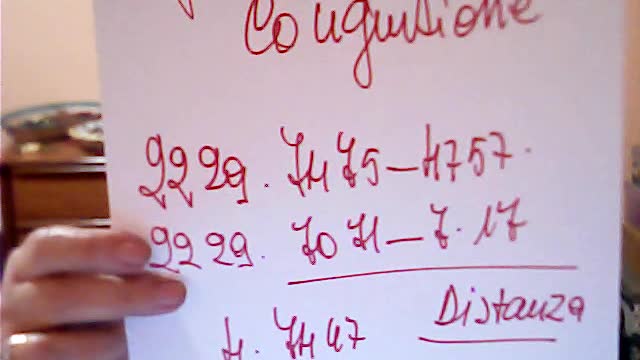 2229. 7475-4757.
2229. 7071-7.17
4. 7447 Distanza